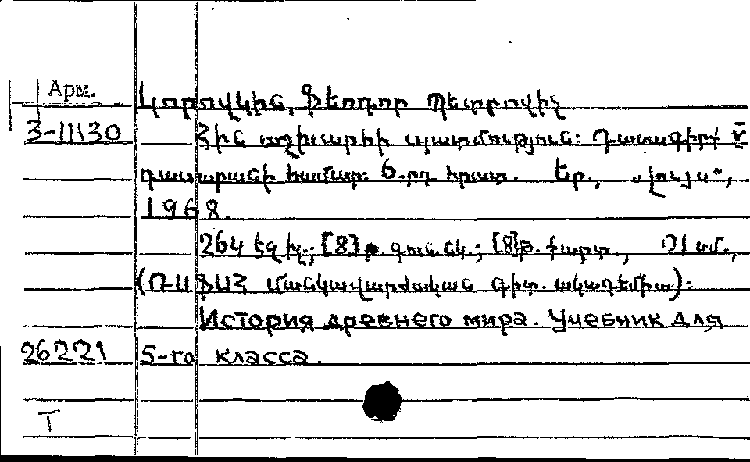 Арм.
Կորովկին, Ֆեոդոր Պետրովիչ
3-11130 Հին աշխարհի պատմություն: Դասագիրք V
դասարանի համար: 6-րդ հրատ. Եր., „Լույս“,
1968.
264 էջ խլ.; [8] թ. գուն. նկ.; [8] թ. քարտ.,
(ՌՍՖՍՀ մանկավարժական գիտ. ակադեմիա):
История древнего мира. Учебник для
26221 5-го класса.
T